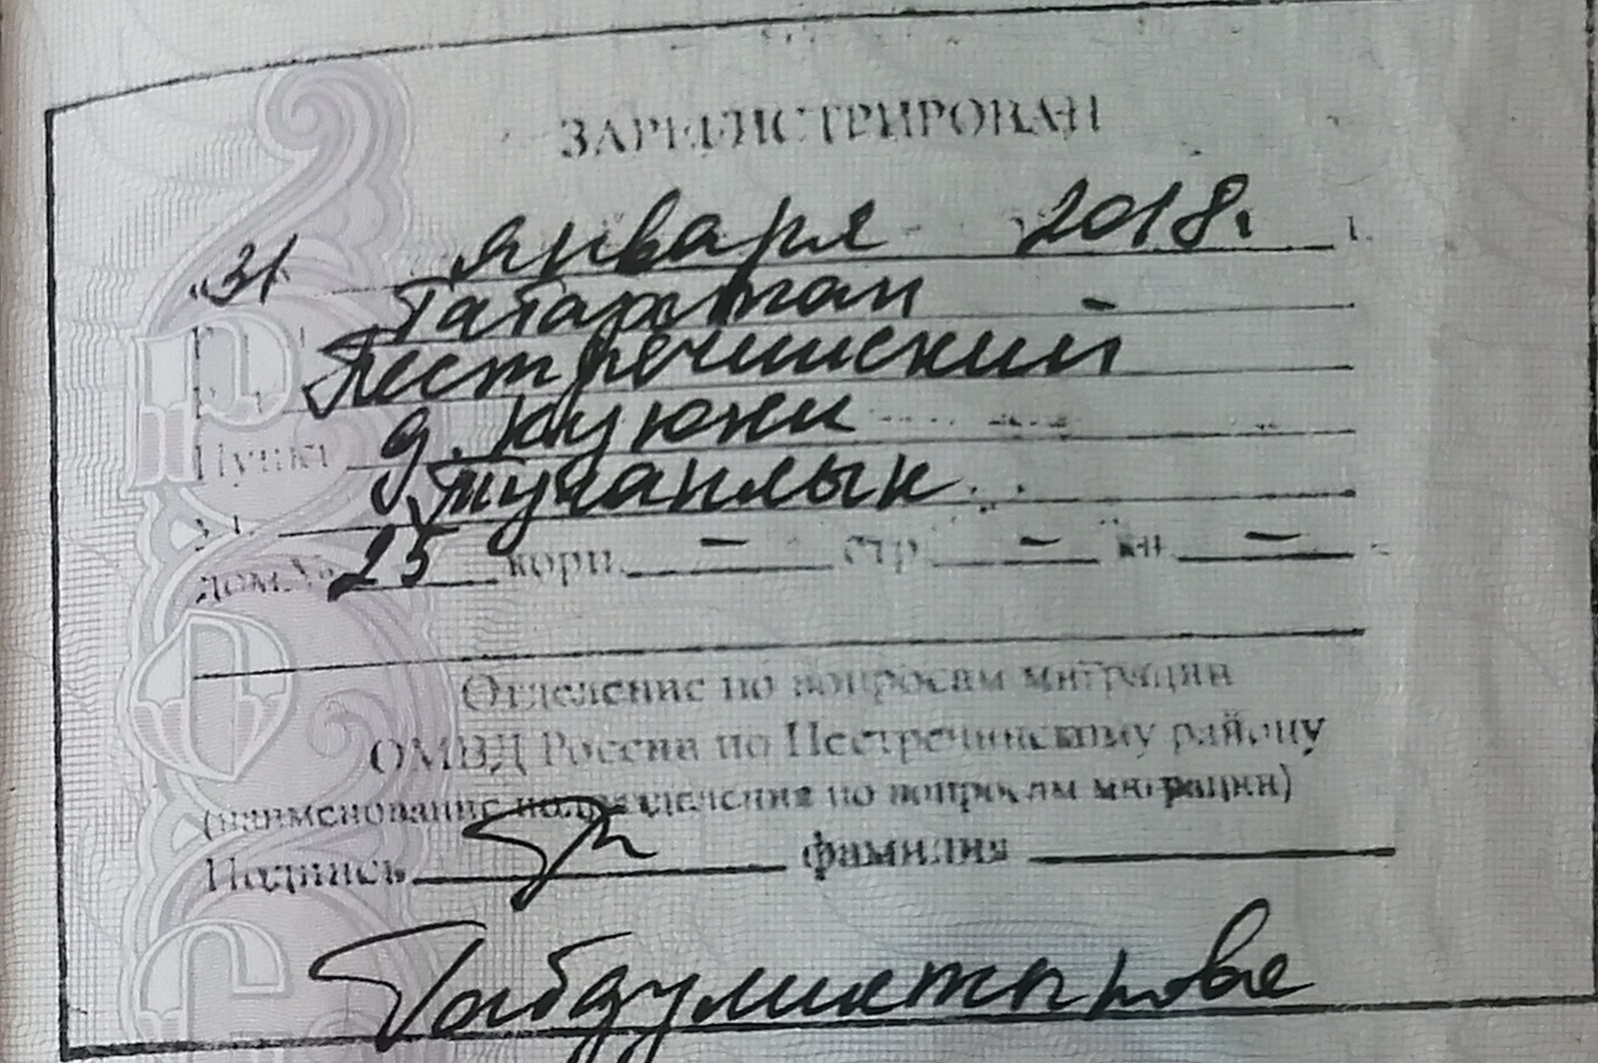 ЗАРЕГИСТРИРОВАН
"31 января 2018. г.
Татарстан
Пестречинский
Пункт д. Куюки
ул. Туганлык
дом № 25 корп. - стр. - кв. -
Отделение по вопросам миграции
ОМВД России по Пестречинскому району
(наименование подразделения по вопросам миграции)
Подпись фамилия